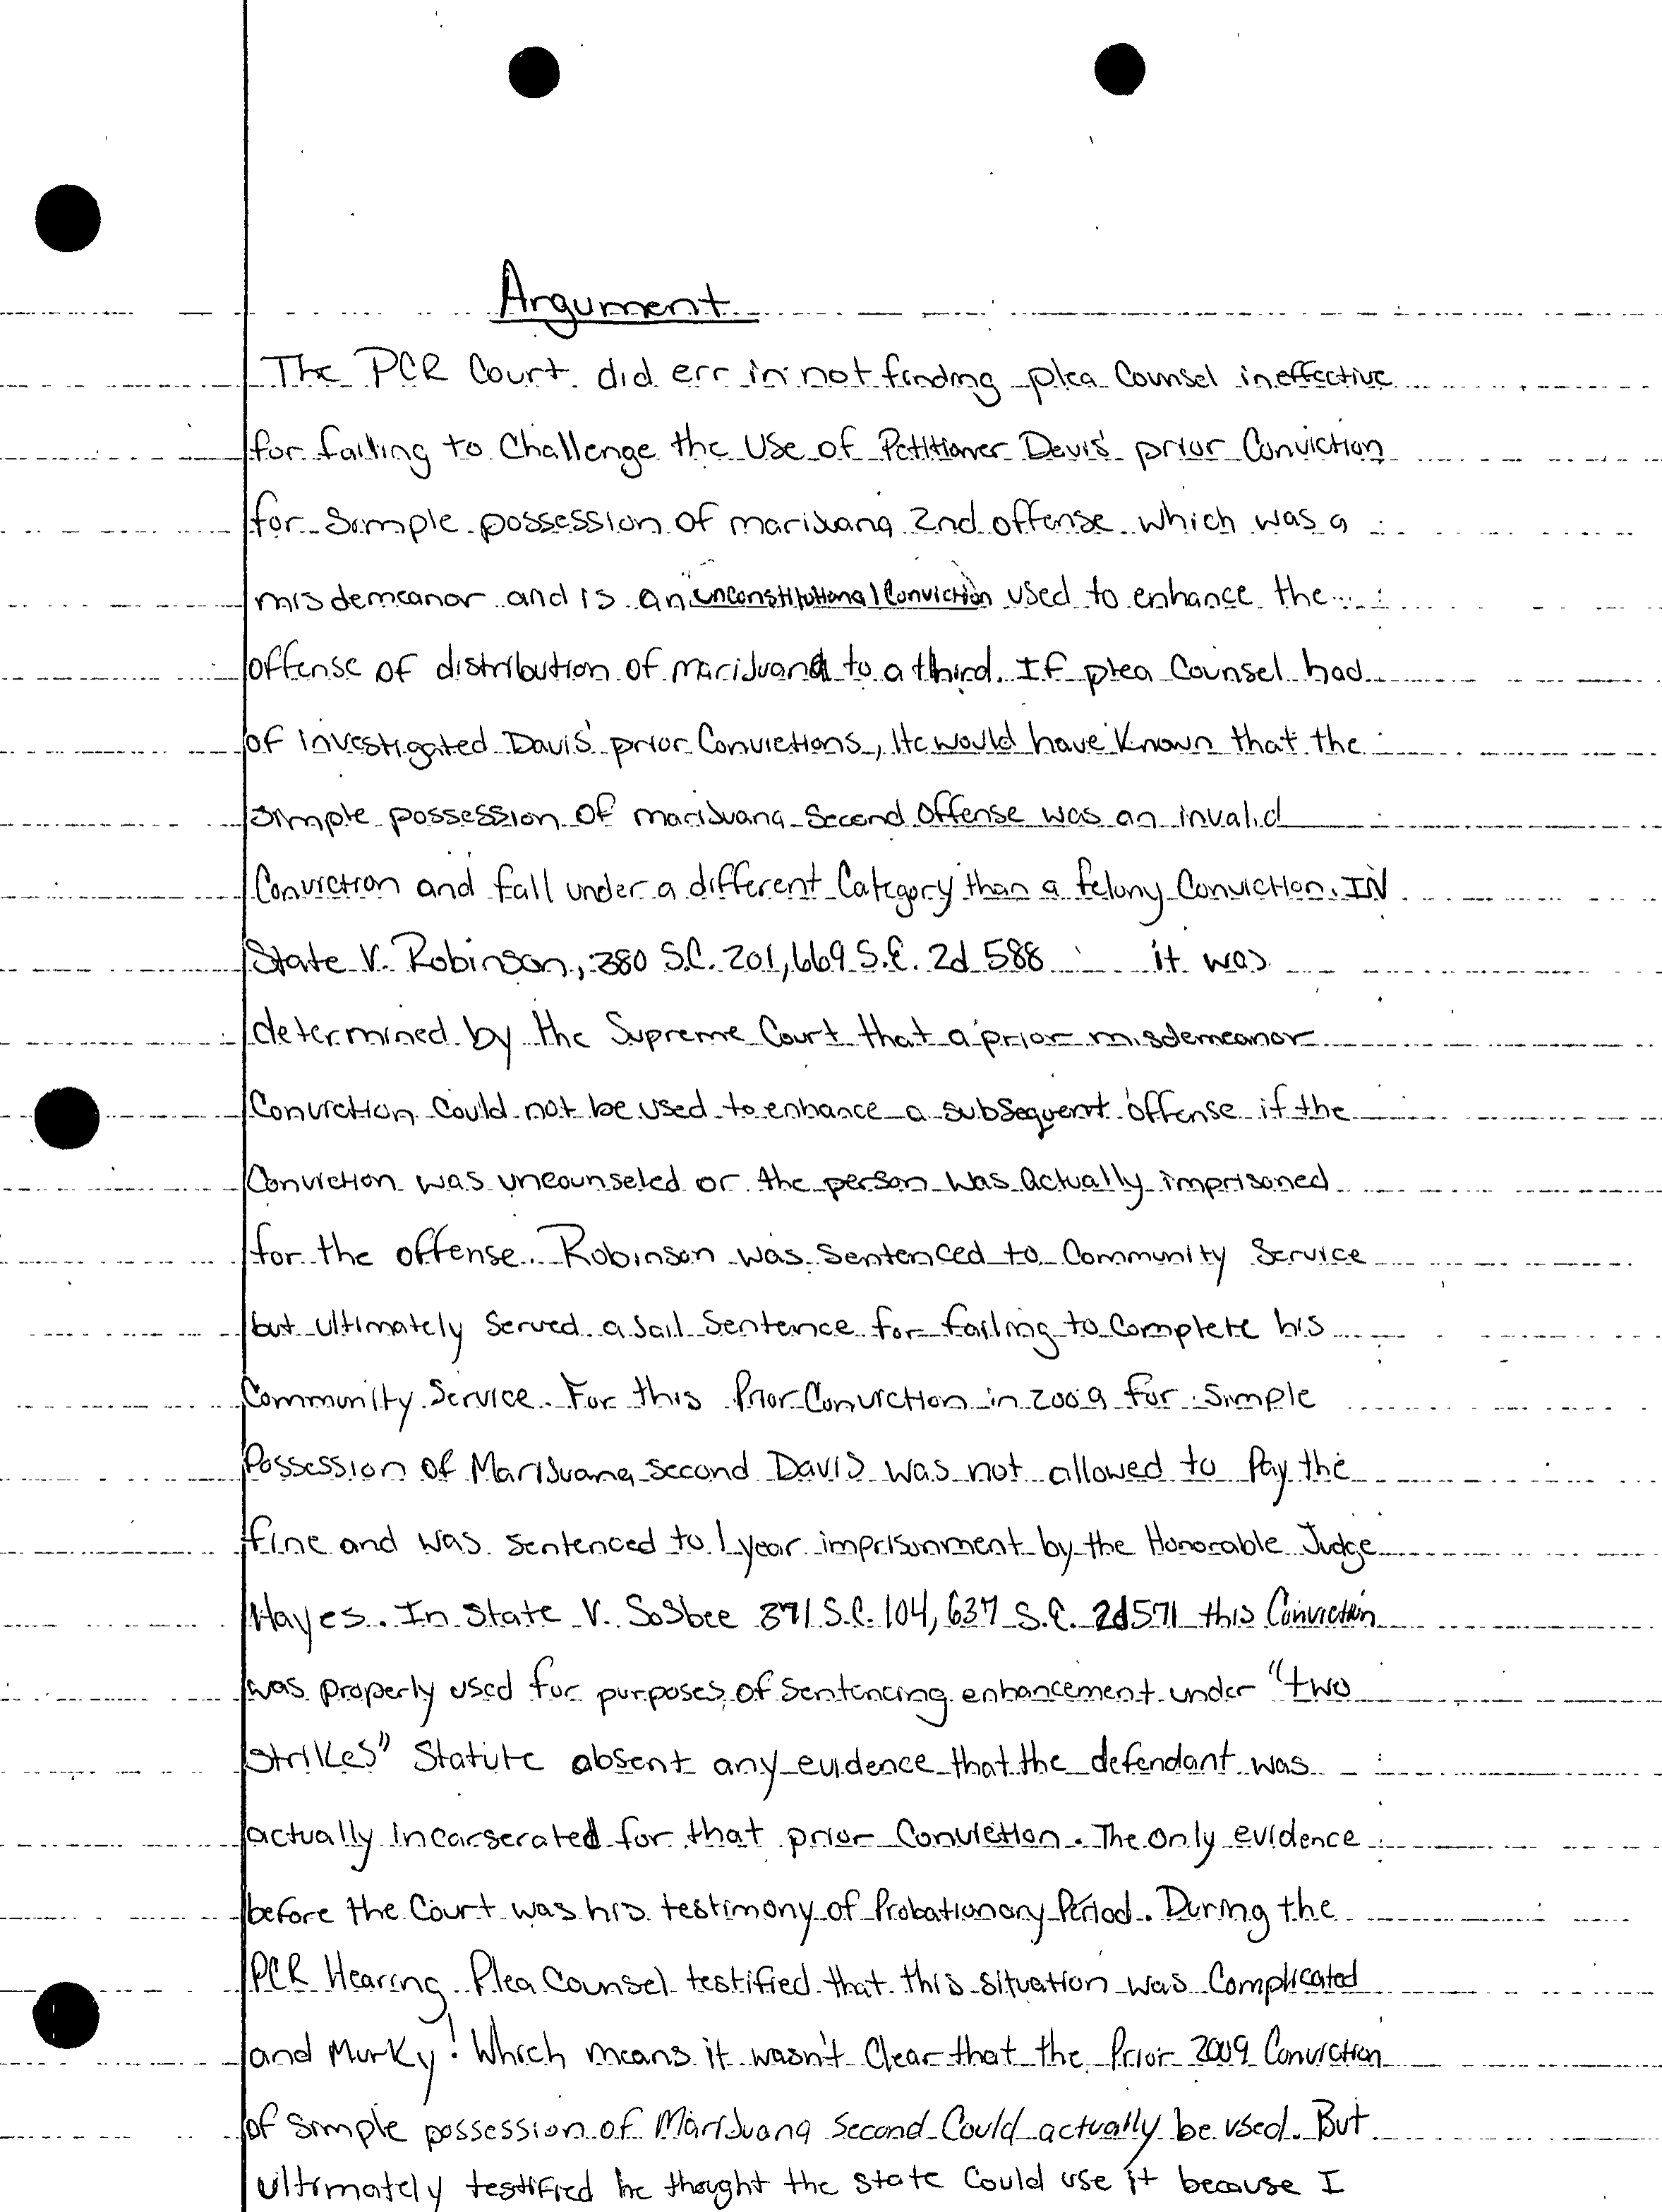 Argument
The PCR Court did err in not finding plea Counsel ineffective
for failing to Challenge the Use of Petitioner Davis' prior Conviction
for Simple possession of marijuana 2nd offense which was a
misdemeanor and is an "unconstitutional Conviction" used to enhance the
offense of distribution of marijuana to a third. If plea Counsel had
of investigated Davis' prior Convictions, He would have Known that the
simple possession of marijuana Second Offense was an invalid
Conviction and fall under a different Category than a felony Conviction. IN
State V. Robinson, 380 S.C. 201, 669 S.E. 2d 588 it was
determined by the Supreme Court that a prior misdemeanor
Conviction Could not be used to enhance a subsequent offense if the
Conviction was uncounseled or the person was actually imprisoned
for the offense. Robinson was sentenced to Community Service
but ultimately Served a Jail Sentence for failing to Complete his
Community Service. For this Prior Conviction in 2009 for Simple
Possession of Marijuana second Davis was not allowed to Pay the
fine and was sentenced to 1 year imprisonment by the Honorable Judge
Hayes. In State V. SoSbee 371 S.C. 104, 637 S.E. 2d 571 this Conviction
was properly used for purposes of Sentencing enhancement under "two
strikes" Statute absent any evidence that the defendant was
actually Incarserated for that prior Conviction. The only evidence
before the Court was his testimony of Probationary Period. During the
PCR Hearing Plea Counsel testified that this situation was Complicated
and Murky! Which means it wasn't Clear that the Prior 2009 Conviction
of Simple possession of Marijuana Second Could actually be used. But
ultimately testified he thought the state Could use it because I